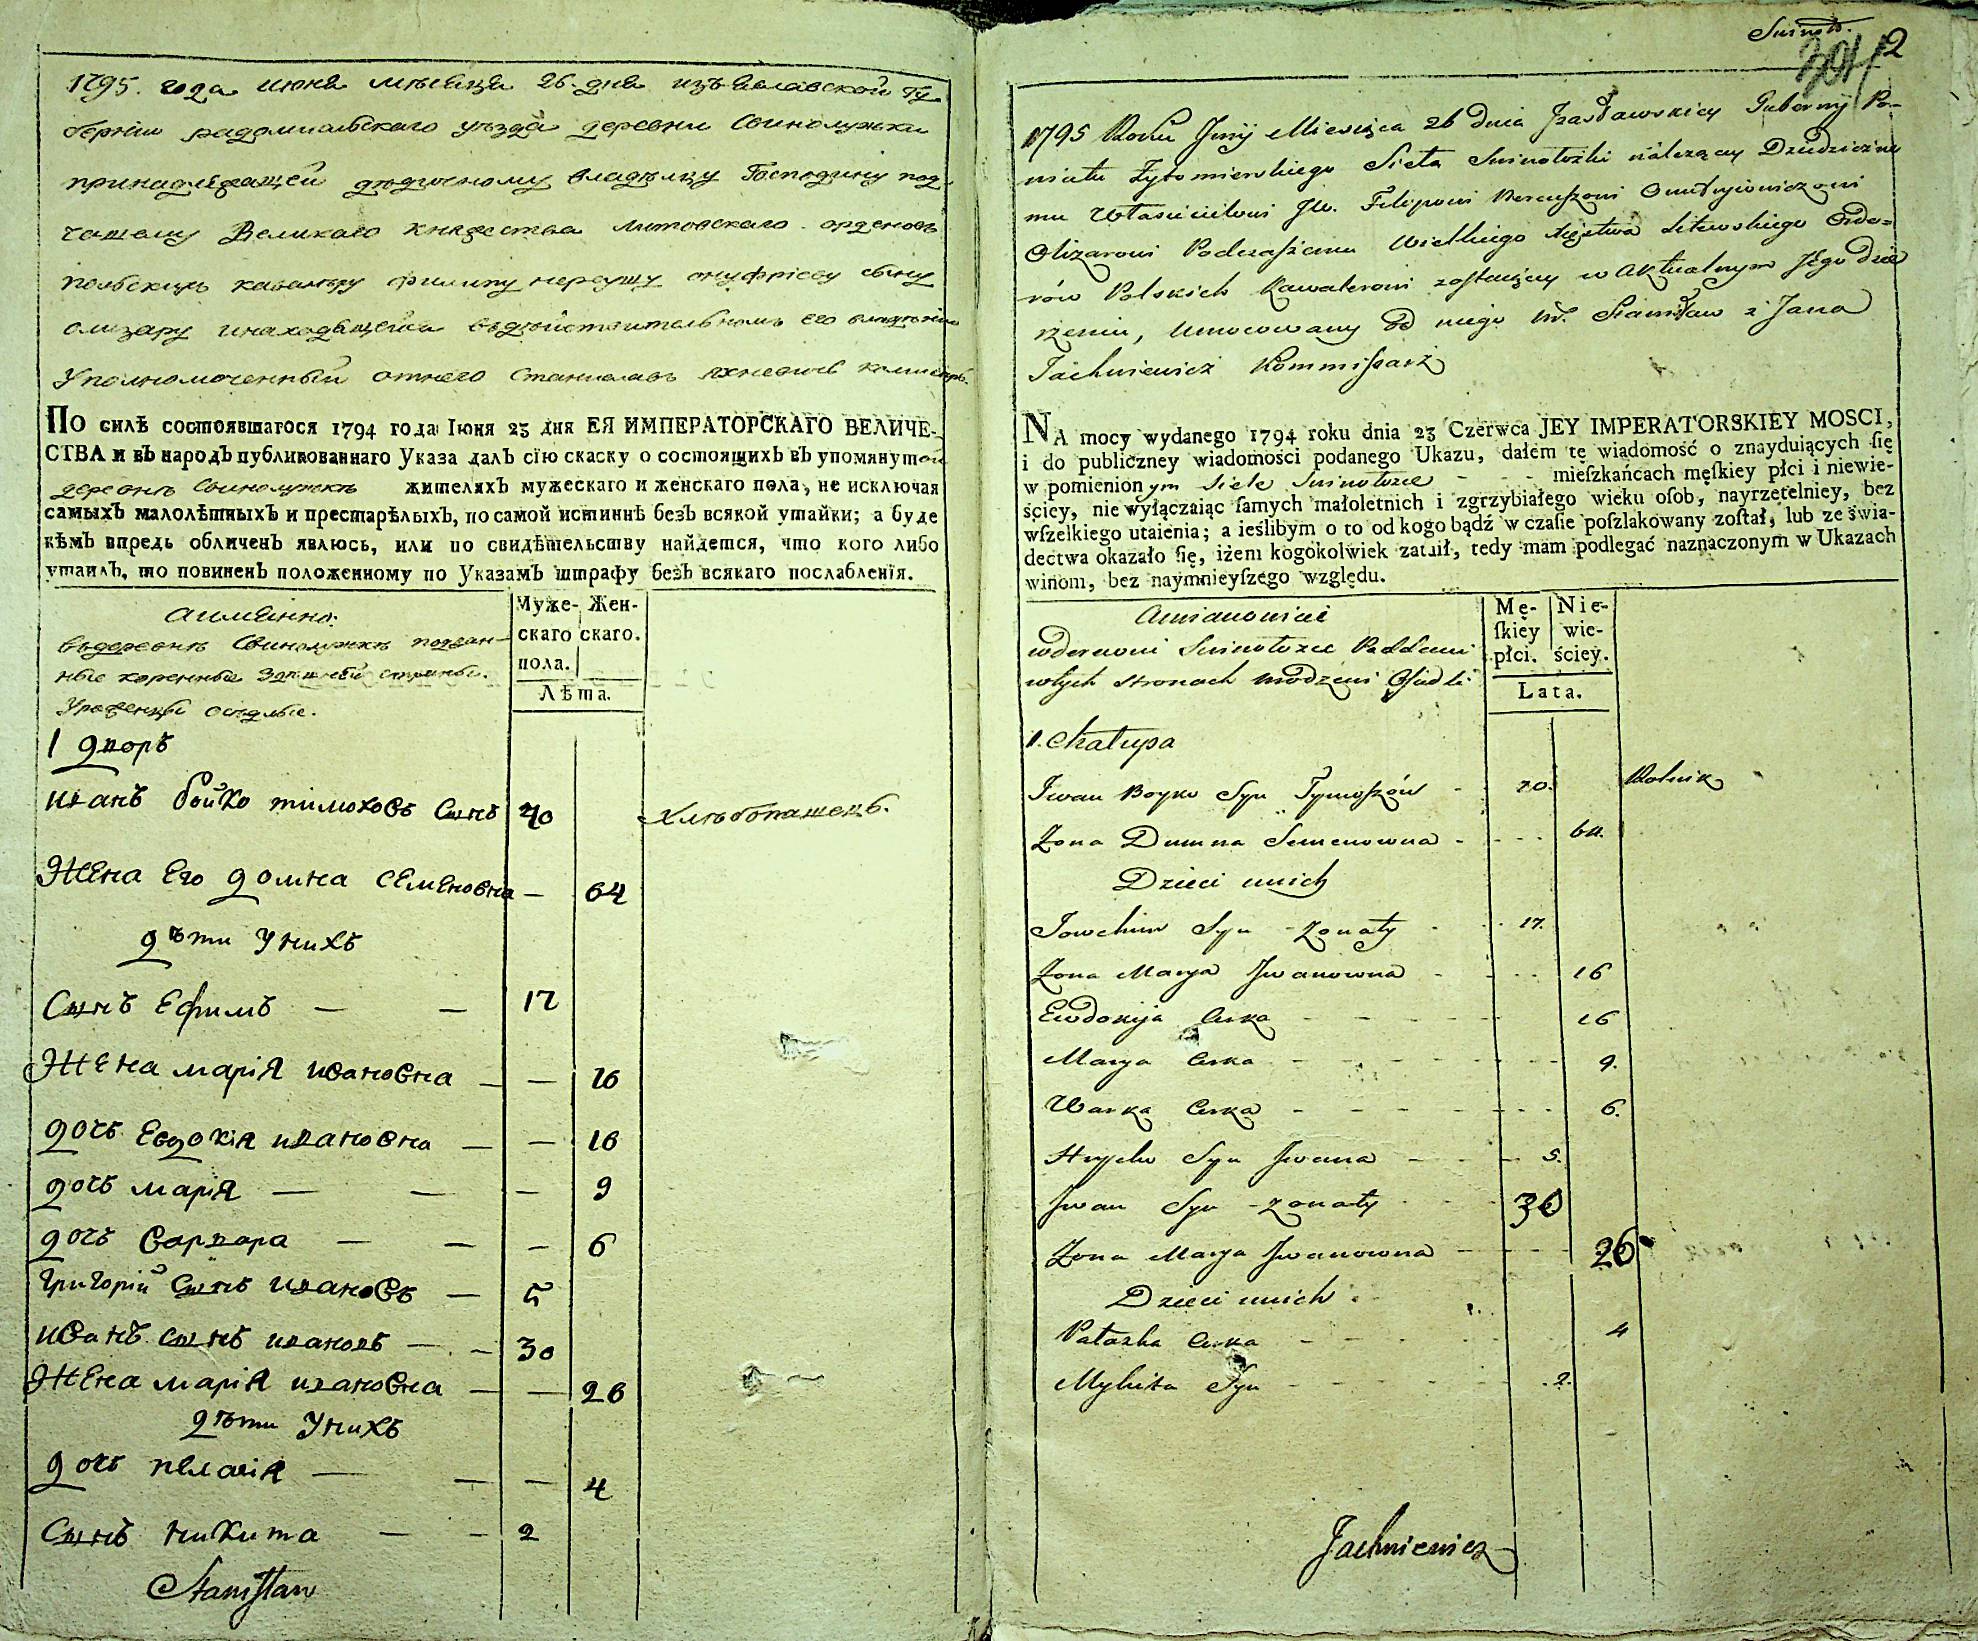 1795. года июня мѣсяца 26. дня изъяславской гу
берніи радомысльскаго уѣзда деревни Свинолужки
принадлежащей дѣдичному владѣльцу Господину под
чашему Великаго княжества литовскаго орденовъ
польскихъ кавалеру филипу нереушу онуфріеву сыну
олизару инаходящейся въдѣйствительномъ его владѣніи
Уполномоченный отнего Станиславъ яхневичъ комисаръ
ПО силѣ состоявшагося 1794 года Іюня 23 дня ЕЯ ИМПЕРАТОРСКАГО ВЕЛИЧЕ-
СТВА и въ народъ публикованнаго Указа далъ сїю скаску о состоящихъ въ упомянутой
деревнѣ Свинолужкѣ жителяхъ мужескаго и женскаго пола, не исключая
самыхъ малолѣтныхъ и престарѣлыхъ, по самой истиннѣ безъ всякой утайки; а буде
кѣмъ впредь обличенъ явлюсь, или по свидѣтельству найдется, что кого либо
утаилъ, то повиненъ положенному по Указамъ штрафу безъ всякаго послабленїя.
аимѣнно:
въдеревнѣ Свинолужкѣ поддан-
ные коренные здѣшней страны.
Уроженцы осѣдлые.
Муже- Жен-
скаго скаго.
пола.
Лѣта.
1 дворъ
иванъ бойко тимоховъ сынъ 70 хлѣбопашецъ.
жена Его домна семеновна — 64
дѣти Унихъ
Сынъ Ефимъ — — 17
жена марія ивановна — — 16
дочь Евдокія ивановна — — 16
дочь марія — — — 9
дочь варвара — — — 6
григорій сынъ ивановъ — 5
иванъ сынъ ивановъ — — 30
жена марія ивановна — — 26
дѣти Унихъ
дочь пелагія — — — 4
Сынъ никита — — 2
Stanisław
Swinoł. 2
1795 Roku Junij Miesiąca 26 dnia Jzasławskiey Guberny Po-
wiatu Żytomierskiego Sieła Swinołożki należący Dziedziczne
mu Własicielowi JW. Filipowi Nereuszowi Onufryiowiczowi
Olizarowi Podczaszemu Wielkiego Xięstwa Litewskiego Orde-
rów Polskich Kawalerowi zostaiący w Aktualnym Jego dzie
rżeniu, Umocowany od niego W. Stanisław z Jana
Jachniewicz Kommissarz
NA mocy wydanego 1794 roku dnia 23 Czerwca JEY IMPERATORSKIEY MOSCI,
i do publiczney wiadomości podanego Ukazu, dałem tę wiadomość o znayduiących się
w pomienionym Siele Swinołożce - - mieſzkańcach męſkiey płci i niewie-
ściey, nie wyłączaiąc ſamych małoletnich i zgrzybiałego wieku oſob, nayrzetelniey, bez
wſzelkiego utaienia; a ieślibym o to od kogo bądź w czaſie poſzlakowany zoſtał, lub ze świa-
dectwa okazało ſię, iżem kogokolwiek zataił, tedy mam podlegać naznaczonym w Ukazach
winom, bez naymnieyſzego względu.
Amianowicie
wderewni Swinołozce Poddani
wtych stronach urodzeni Osiedli
Mę- Nie-
ſkiey wie-
płci. ściey.
Lata.
1. Chałupa
Iwan Boyko Syn Tymoszów - 70. Rolnik
Żona Dumna Semenowna - - - - 64.
Dzieci unich
Jowchim Syn - żonaty - - 17.
Żona Marya Jwanowna - - - - 16
Ewdokija Curka - - - - - 16
Marya Curka - - - - - - - 9.
Warka Curka - - - - - - - 6.
Hryćko Syn Jwana - - - - 5.
Jwan Syn - żonaty - - 30
Żona Marya Jwanowna - - - - 26
Dzieci unich
Pałazka Curka - - - - 4
Mykita Syn - - - - - - 2.
Jachniewicz